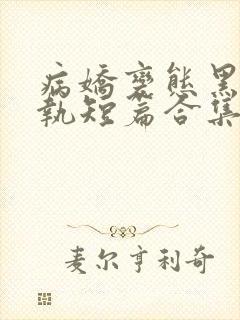 病嬌變態黑
執短篇合集
麦尔亨利奇